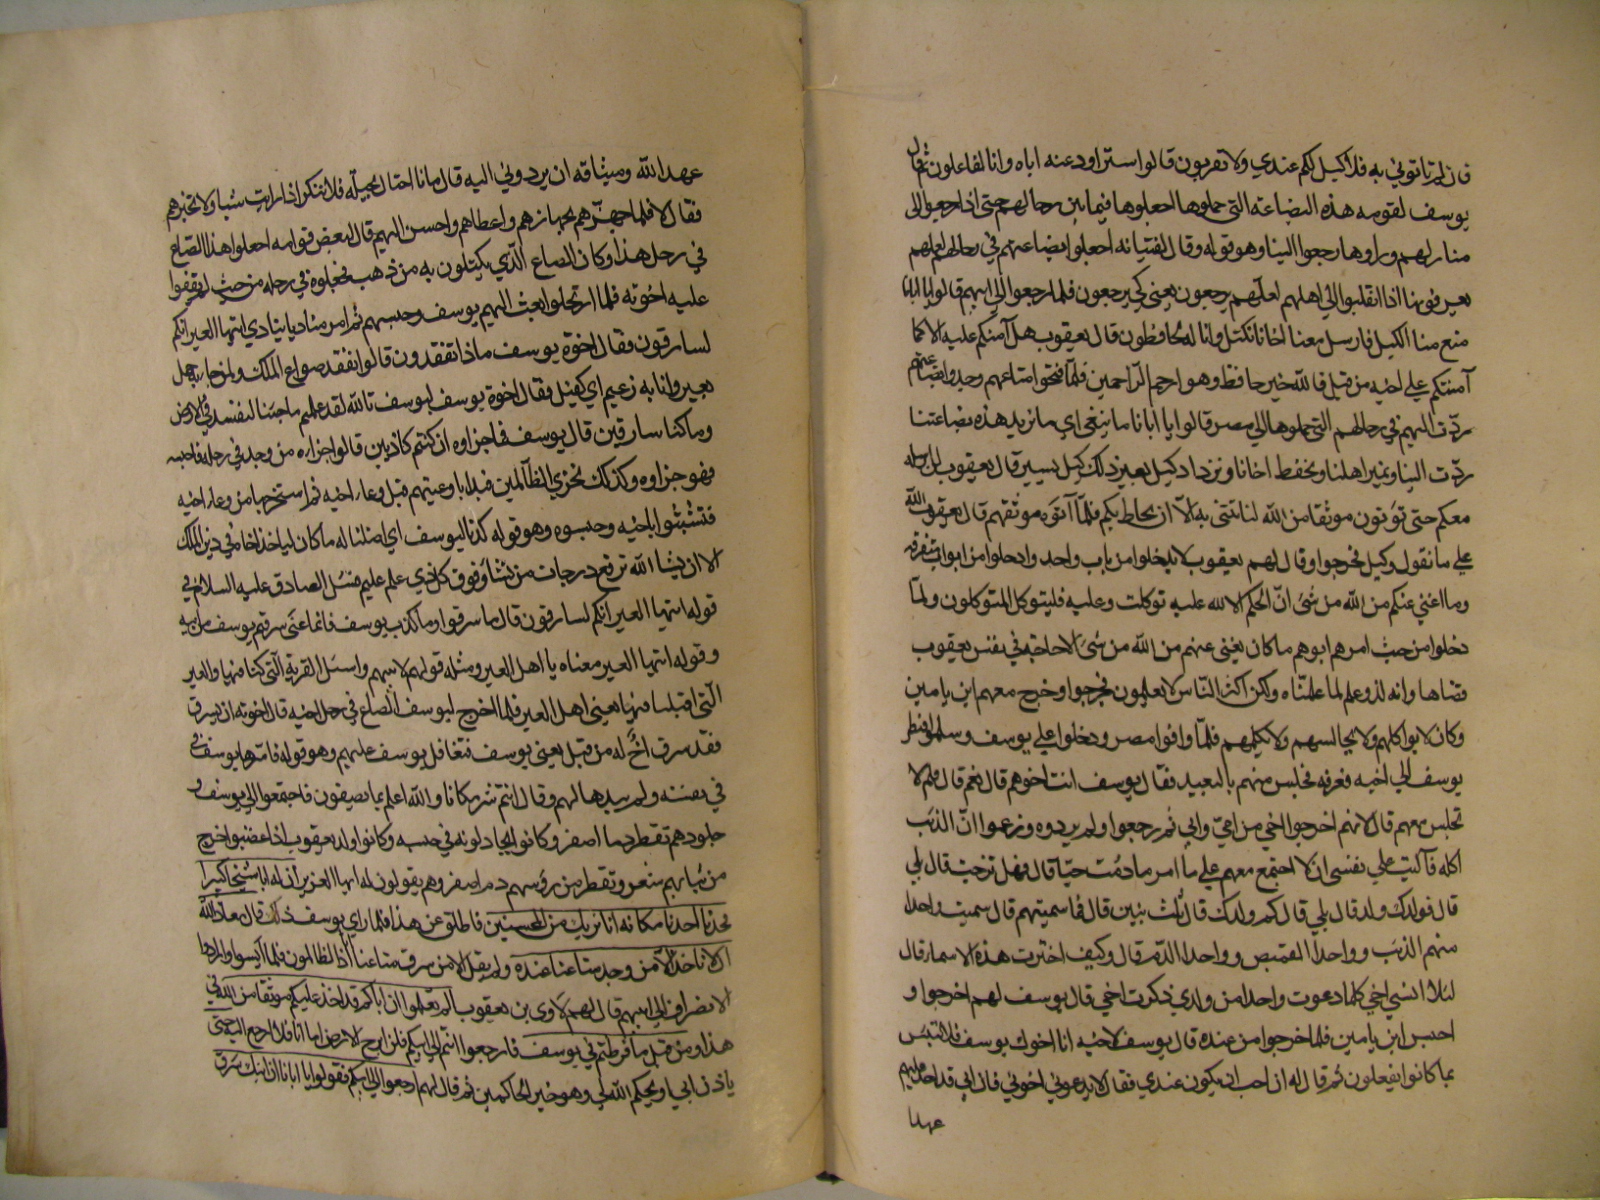 فان لم تاتوني به فلا كيل لكم عندي ولا تقربون قالوا سنراود عنه اباه وانا لفاعلون ثم قال
يوسف لقومه هذه البضاعة التي حملوها اجعلوها فيما بين رحالهم حتى اذا رجعوا الى
منازلهم وراوها رجعوا الينا وهو قوله وقال لفتيانه اجعلوا بضاعتهم في رحالهم لعلهم
يعرفونها اذا انقلبوا الى اهلهم لعلهم يرجعون يعني كي يرجعون فلما رجعوا الى ابيهم قالوا يا ابانا
منع منا الكيل فارسل معنا اخانا نكتل وانا له لحافظون قال يعقوب هل آمنكم عليه الا كما
آمنتكم على اخيه من قبل فالله خير حافظ وهو ارحم الراحمين فلما فتحوا متاعهم وجدوا بضاعتهم
ردّت اليهم في رحالهم التي حملوها الى مصر قالوا يا ابانا ما نبغي اي ما نريد هذه بضاعتنا
ردّت الينا ونمير اهلنا ونحفظ اخانا ونزداد كيل بعير ذلك كيل يسير قال يعقوب لن ارسله
معكم حتى تؤتون موثقا من الله لتاتنني به الا ان يحاط بكم فلما آتوه موثقهم قال يعقوب الله
على ما نقول وكيل فخرجوا وقال لهم يعقوب لا تدخلوا من باب واحد وادخلوا من ابواب متفرقة
وما اغني عنكم من الله من شئ انّ الحكم الا لله عليه توكلت وعليه فليتوكل المتوكلون ولمّا
دخلوا من حيث امرهم ابوهم ما كان يغني عنهم من الله من شئ الا حاجة في نفس يعقوب
قضاها وانه لذو علم لما علمناه ولكن اكثر الناس لا يعلمون فخرجوا وخرج معهم ابن يامين
وكان لا يواكلهم ولا يجالسهم ولا يكلمهم فلمّا وافوا مصر ودخلوا على يوسف وسلموا فنظر
يوسف الى اخيه فعرفه فجلس منهم بالبعيد فقال يوسف انت اخوهم قال نعم قال فلم لا
تجلس معهم قال لانهم اخرجوا اخي من امي وابي ثم رجعوا ولم يردوه وزعموا انّ الذئب
اكله فآليت على نفسي ان لا اجتمع معهم على امر ما دمت حيّا قال فهل تزوجت قال بلى
قال فولد لك ولد قال بلى قال كم ولد لك قال ثلث بنين قال فما سميتهم قال سميت واحدا
منهم الذئب وواحدا القميص وواحدا الدّم قال وكيف اخترت هذه الاسماء قال
لئلا انسي اخي كلما دعوت واحدا من ولدي ذكرت اخي قال يوسف لهم اخرجوا و
احبس ابن يامين فلما خرجوا من عنده قال يوسف لاخيه انا اخوك يوسف فلا تبتئس
بما كانوا يفعلون ثم قال له انا احب ان تكون عندي فقال لا يدعوني اخوتي فان ابي قد اخذ عليهم
عهدا
عهد الله وميثاقه ان يردوني اليه قال فانا احتال بحيلة فلا تنكر اذا رايت شيئا ولا تخبرهم
فقال لا فلما جهّزهم بجهازهم واعطاهم واحسن اليهم قال لبعض قوامه اجعلوا هذا الصّاع
في رحل هذا وكان الصاع الذي يكيلون به من ذهب فجعلوه في رحله من حيث لم يقفوا
عليه اخوته فلما ارتحلوا بعث اليهم يوسف وحبسهم ثم امر مناديا ينادي ايتها العير انكم
لسارقون فقال اخوة يوسف ماذا تفقدون قالوا نفقد صواع الملك ولمن جاء به حمل
بعير وانا به زعيم اي كفيل فقال اخوة يوسف ليوسف تالله لقد علمتم ما جئنا لنفسد في الارض
وما كنا سارقين قال يوسف فما جزاؤه ان كنتم كاذبين قالوا جزاؤه من وجد في رحله فاحبسه
فهو جزاوه وكذلك نجزي الظالمين فبدا باوعيتهم قبل وعاء اخيه ثم استخرجها من وعاء اخيه
فتشبثوا باخيه وحبسوه وهو قوله كذلك كدنا ليوسف اي احتلنا له ما كان لياخذ اخاه في دين الملك
الا ان يشا الله نرفع درجات من نشا وفوق كل ذي علم عليم فسئل الصادق عليه السلام في
قوله ايتها العير انكم لسارقون قال ما سرقوا وما كذب يوسف فانما عنى سرقتم يوسف من ابيه
وقوله ايتها العير معناه يا اهل العير ومثله قولهم لابيهم واسئل القرية التي كنا فيها والعير
التي اقبلنا فيها يعني اهل العير فلما اخرج ليوسف الصاع في رحل اخيه قال اخوته ان يسرق
فقد سرق اخ له من قبل يعني يوسف فتغافل يوسف عليهم وهو قوله فاسرها يوسف في
في نفسه ولم يبدها لهم وقال انتم شر مكانا والله اعلم بما تصفون فاجتمعوا الى يوسف و
جلودهم تقطر دما اصفر وكانوا يجادلونه في حبسه وكانوا ولد يعقوب اذا غضبوا خرج
من ثيابهم شعر ويقطر من رؤسهم دم اصفر وهم يقولون له ايها العزيز ان له ابا شيخا كبيرا
فخذ احدنا مكانه انا نريك من المحسنين فاطلق عن هذا فلما راى يوسف ذلك قال معاذ الله
ان ناخذ الا من وجدنا متاعنا عنده ولم يقل الا من سرق متاعنا انا اذا لظالمون فلما آيسوا وارادوا
الانصراف الى ابيهم قال لهم لاوى بن يعقوب الم تعلموا ان اباكم قد اخذ عليكم موثقا من الله في
هذا ومن قبل ما فرطتم في يوسف فارجعوا انتم الى ابيكم فلن ابرح الارض اما انا فلا ارجع اليه حتى
ياذن لي ابي او يحكم الله لي وهو خير الحاكمين ثم قال لهم ارجعوا الى ابيكم فقولوا يا ابانا ان ابنك سرق